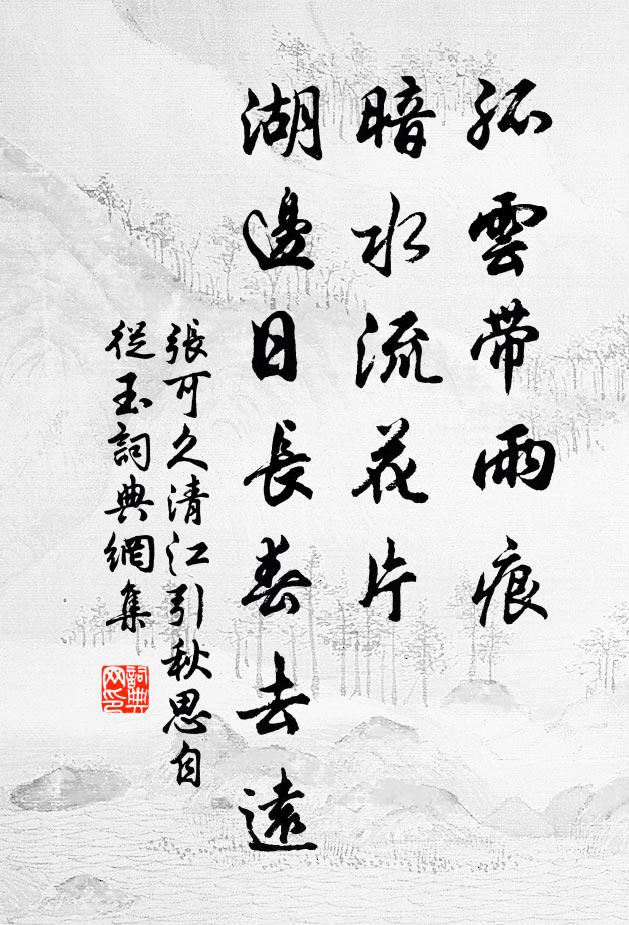 孤雲帶雨痕
暗水流花片
湖邊日長春去遠
張可久清江引秋思自
從玉詞典網集
詞典网印